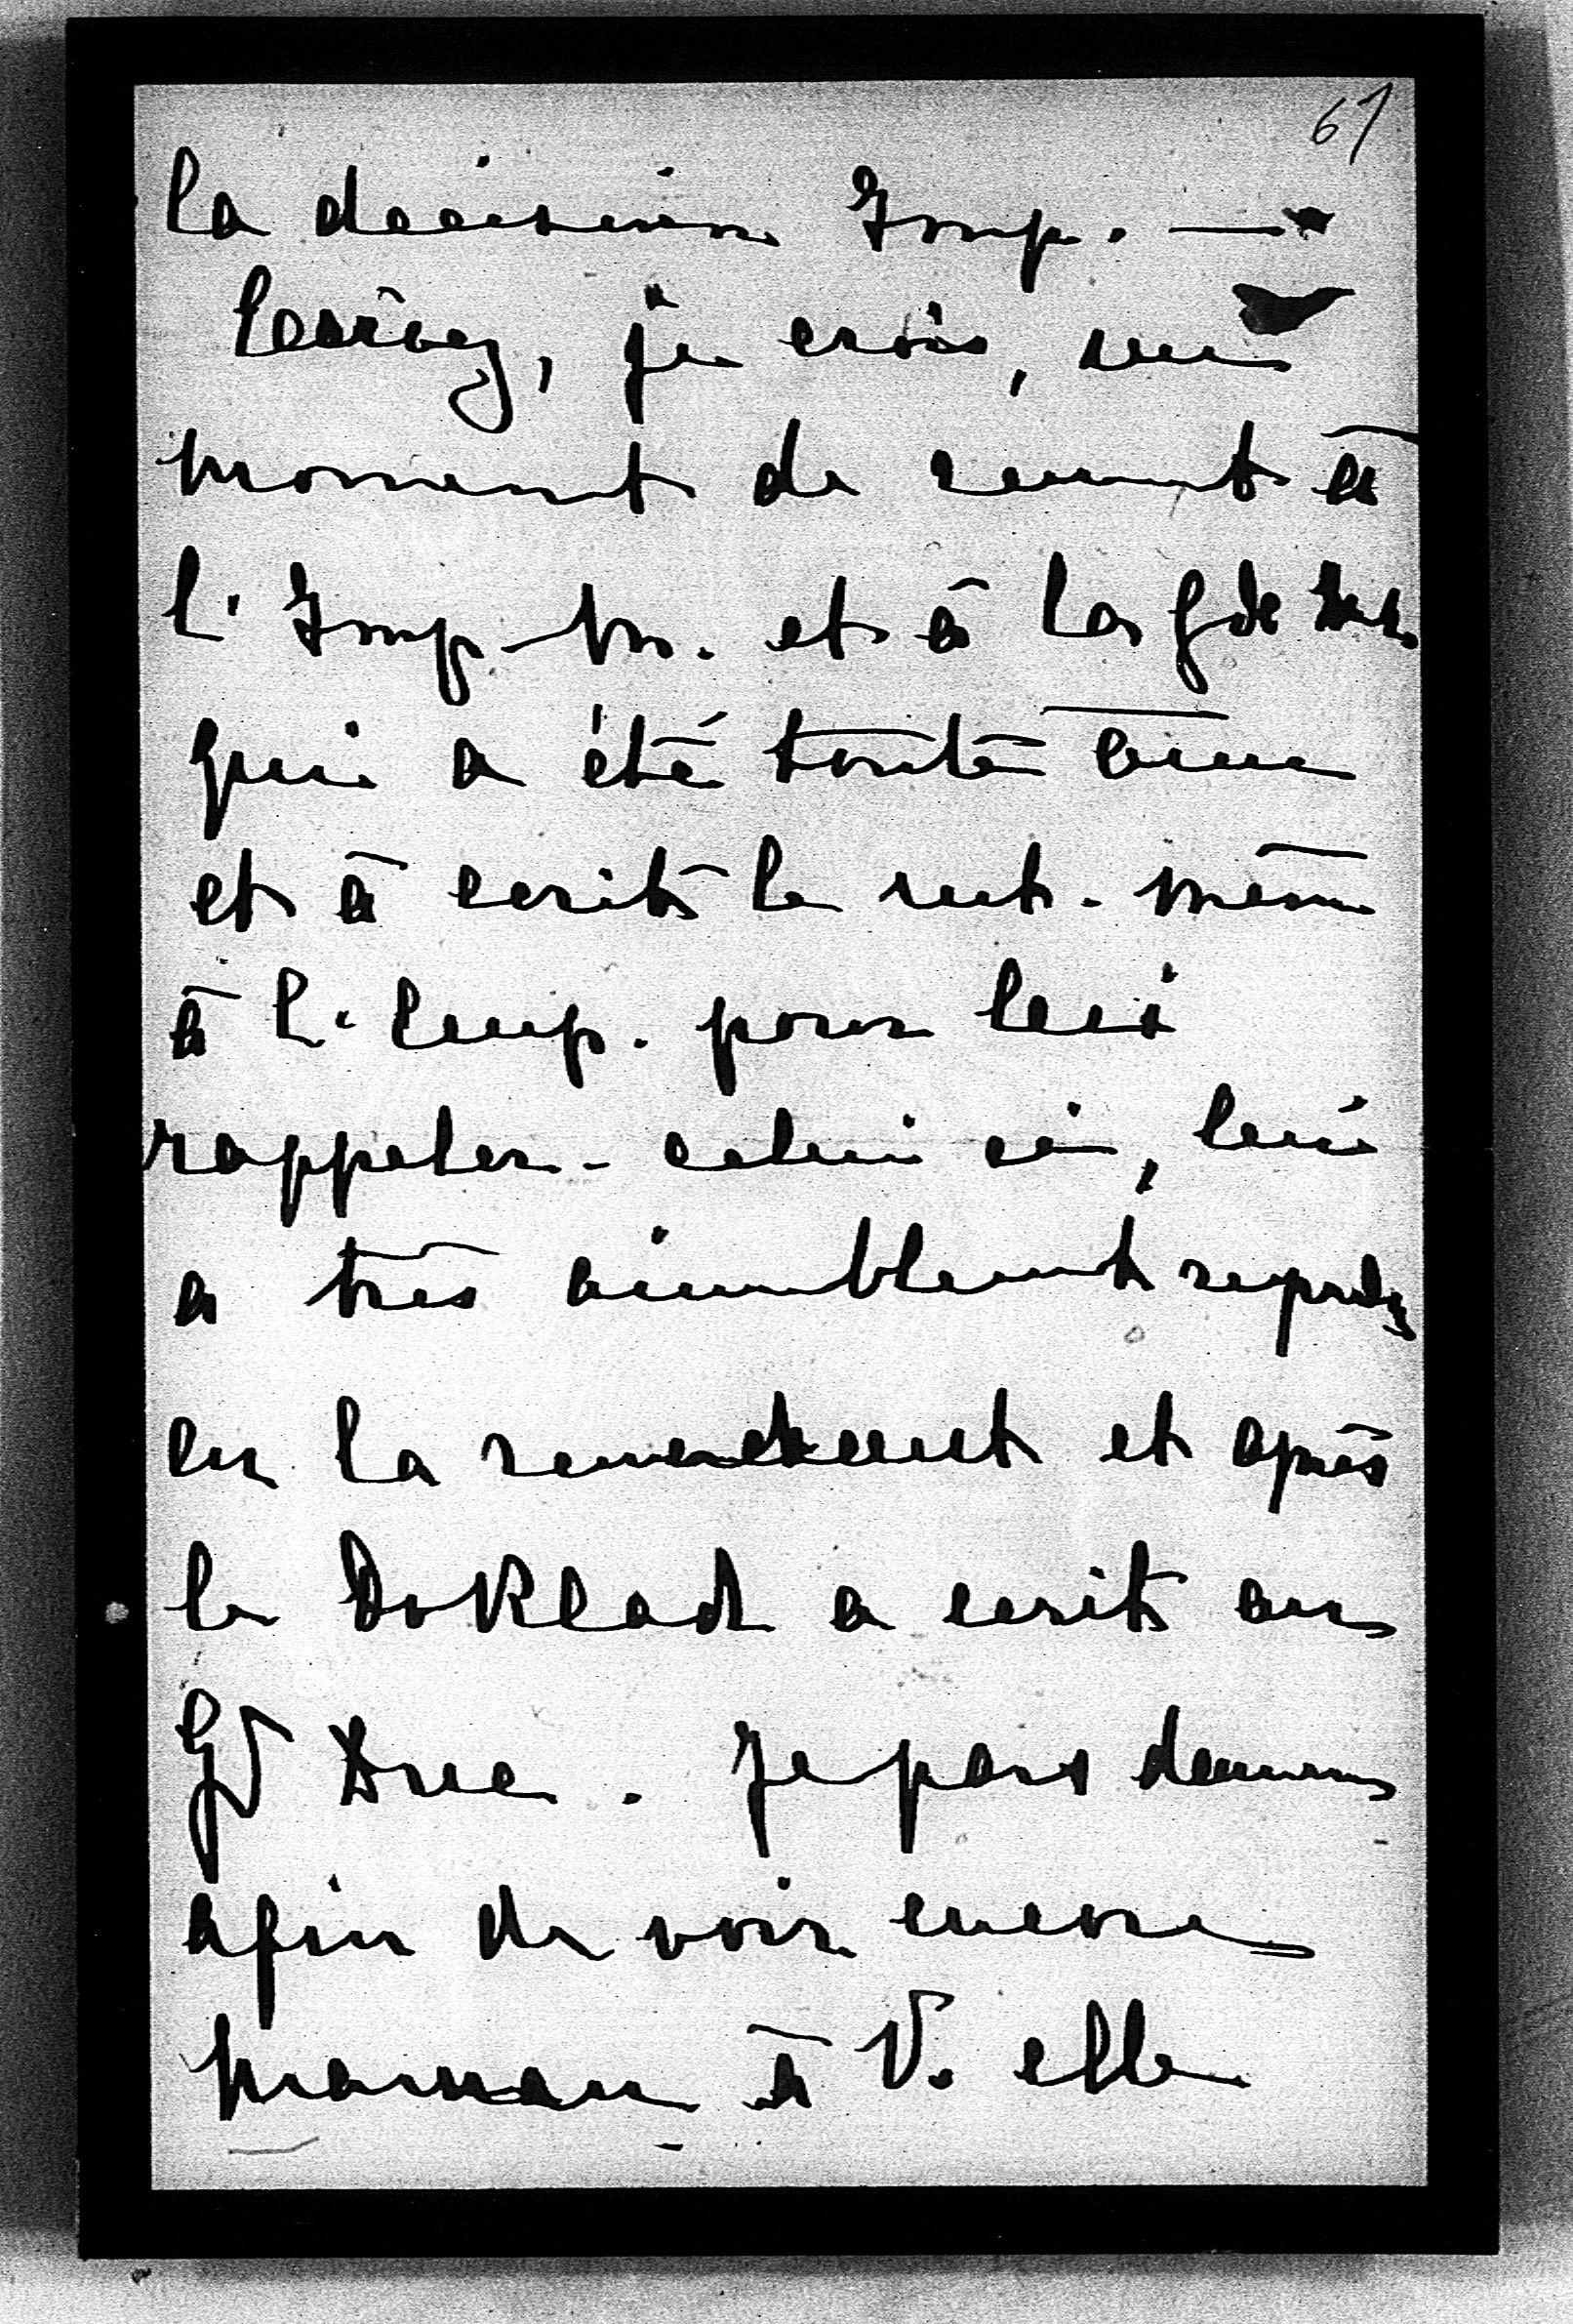 61
la decision Imp. —
Ecrivez, je crois, un
moment de remut à
l'Imp. M. et à la gde Duch.
qui a été toute émue
et à ecrit le mt. même
à l'Emp. pour lui
rappeler - celui ci, lui
a très aimablement
en la remerciant et après
le Doklad a ecrit au
Gd Duc. Je pars demain
afin de voir encore
maman à V. elle